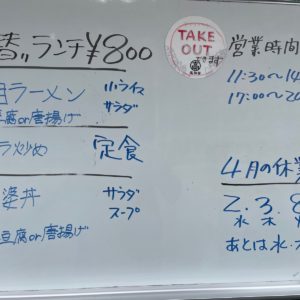 替りランチ¥800
ラーメン 小ライス
サラダ
腐or唐揚げ
ラ炒め 定食
丼 サラダ
スープ
豆腐or唐揚げ
TAKE
OUT
できます
営業時間
11:30〜14
17:00〜2
4月の休業
2.3.8
水 木
あとは水.